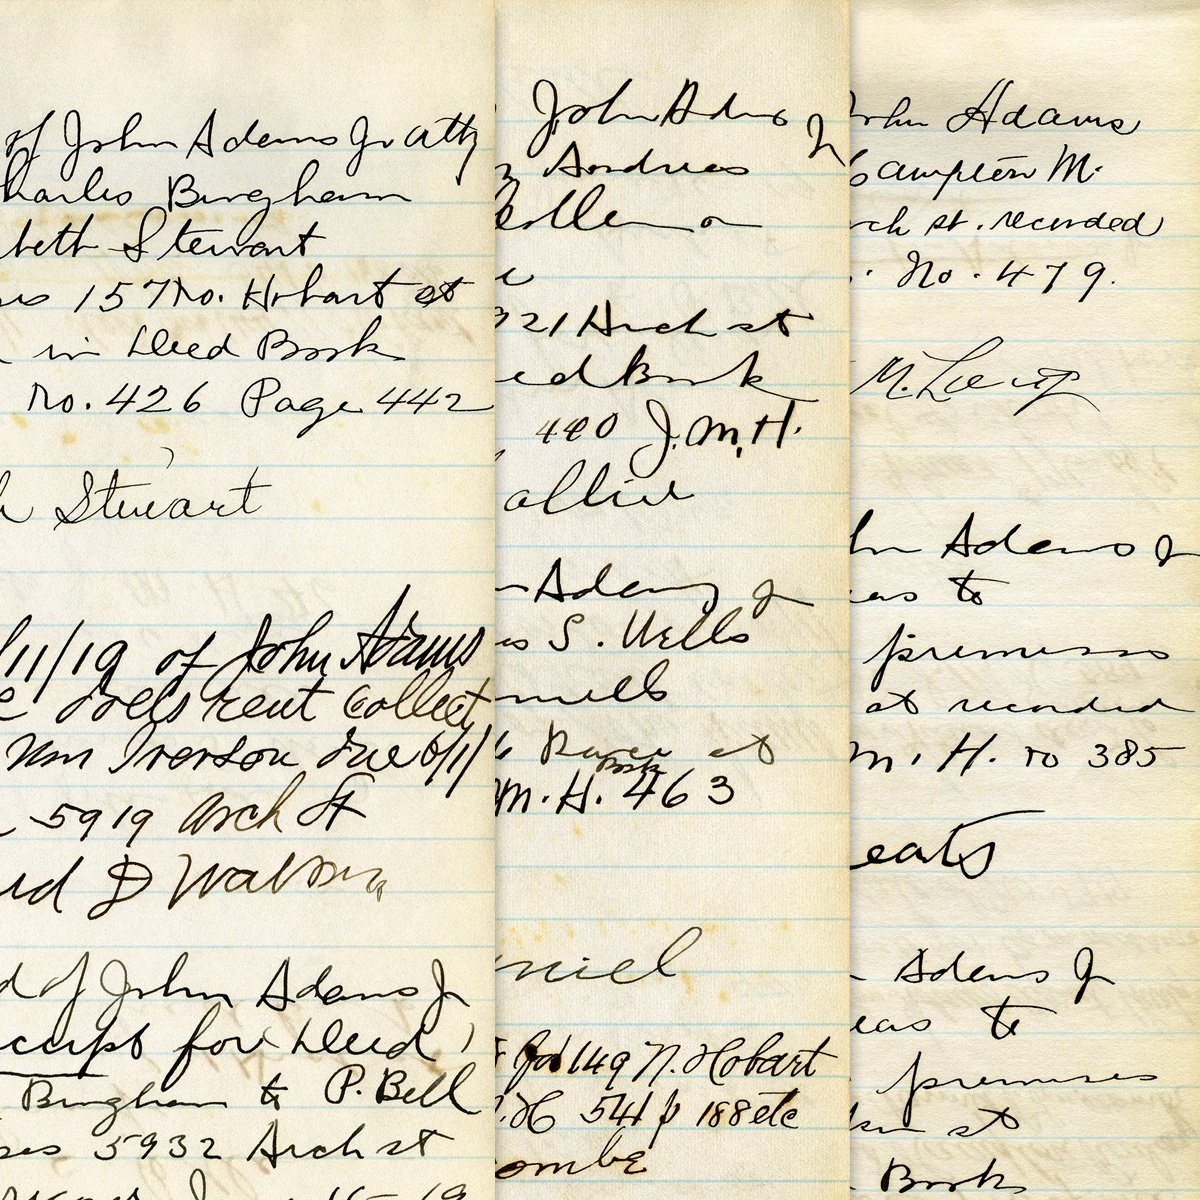 of John Adams Jr atty
harles Bingham
beth Stewart
157 No. Hobart st
in Deed Book
No. 426 Page 442
h Stewart
/11/19 of John Adams
rent collect
Wm Iverson due 6/1/
5919 Arch St
d D Watson
d of John Adams Jr
for Deed
Bingham to P. Bell
ses 5932 Arch st
John Adams Jr
Andreas
on
921 Arch st
ed Book
440 J.M.H.
ollier
Adams Jr
S. Wells
Race st
Book
M.H. 463
niel
for 149 N. Hobart
H 541 p 188 etc
ombe
ohn Adams
ampton M.
rch st. recorded
No. 479.
hn Adams Jr
eas to
premises
st recorded
M. H. no 385
eats
Adams Jr
eas to
premises
st
Book